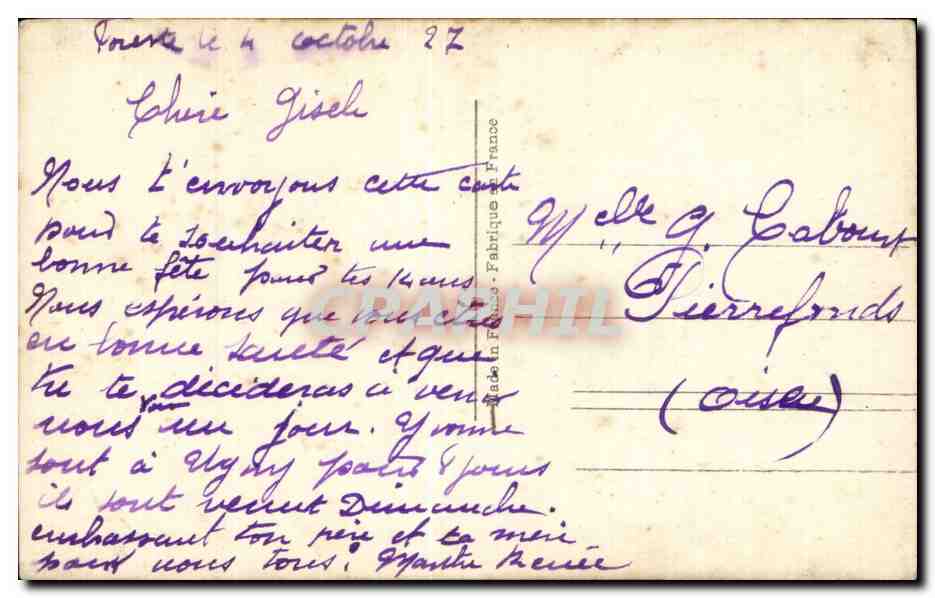 le 4 octobre 27
Chère Gisele
Nous t'envoyons cette carte
pour te souhaiter une
bonne fête pour tes ans
Nous espérons que vous etes
en bonne santé et que
tu te décideras a venir
nous voir un jour. Yvonne
sont à Ugny pour 8 jours
ils sont venut Dimanche.
embrassant ton père et ta mère
pour nous tous. Marthe Renée
Made in France - Fabriqué en France
Melle G. Cabourt
Pierrefonds
(Oise)
CPAPHIL